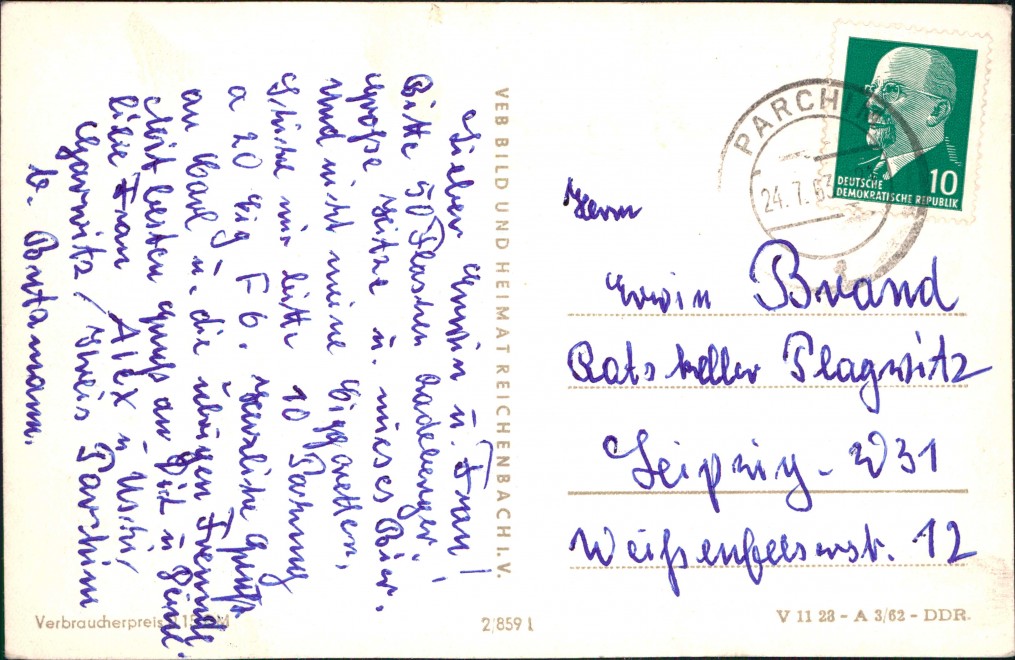 Lieber Erwin u. Frau!
Bitte 50 Flaschen Radeberger!
Große Hitze u. mieses Bier.
Und nicht meine Ziggaretten,
Schicke mir bitte 10 Packung
a 20 Zig F6. Herzliche Grüße
an Karl u. die übrigen Freunde
Mit besten Gruß an Dich u Deine
liebe Frau Alex u.
Garwitz / Kreis Parchim
b.
VEB BILD UND HEIMAT REICHENBACH I. V.
PARCHIM
24.7.63
DEUTSCHE
DEMOKRATISCHE REPUBLIK
10
Herrn
Erwin Brand
Ratskeller Plagwitz
Leipzig - W31
Weißenfelserstr. 12
Verbraucherpreis
2/859 L
V 11 28 - A 3/62 - DDR.